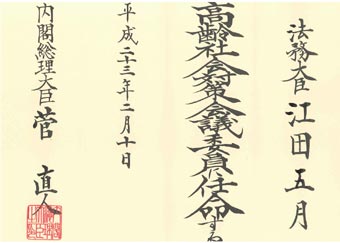 法務大臣 江田五月
高齢社会対策会議委員に任命する
平成二十三年二月十日
内閣総理大臣 菅 直人